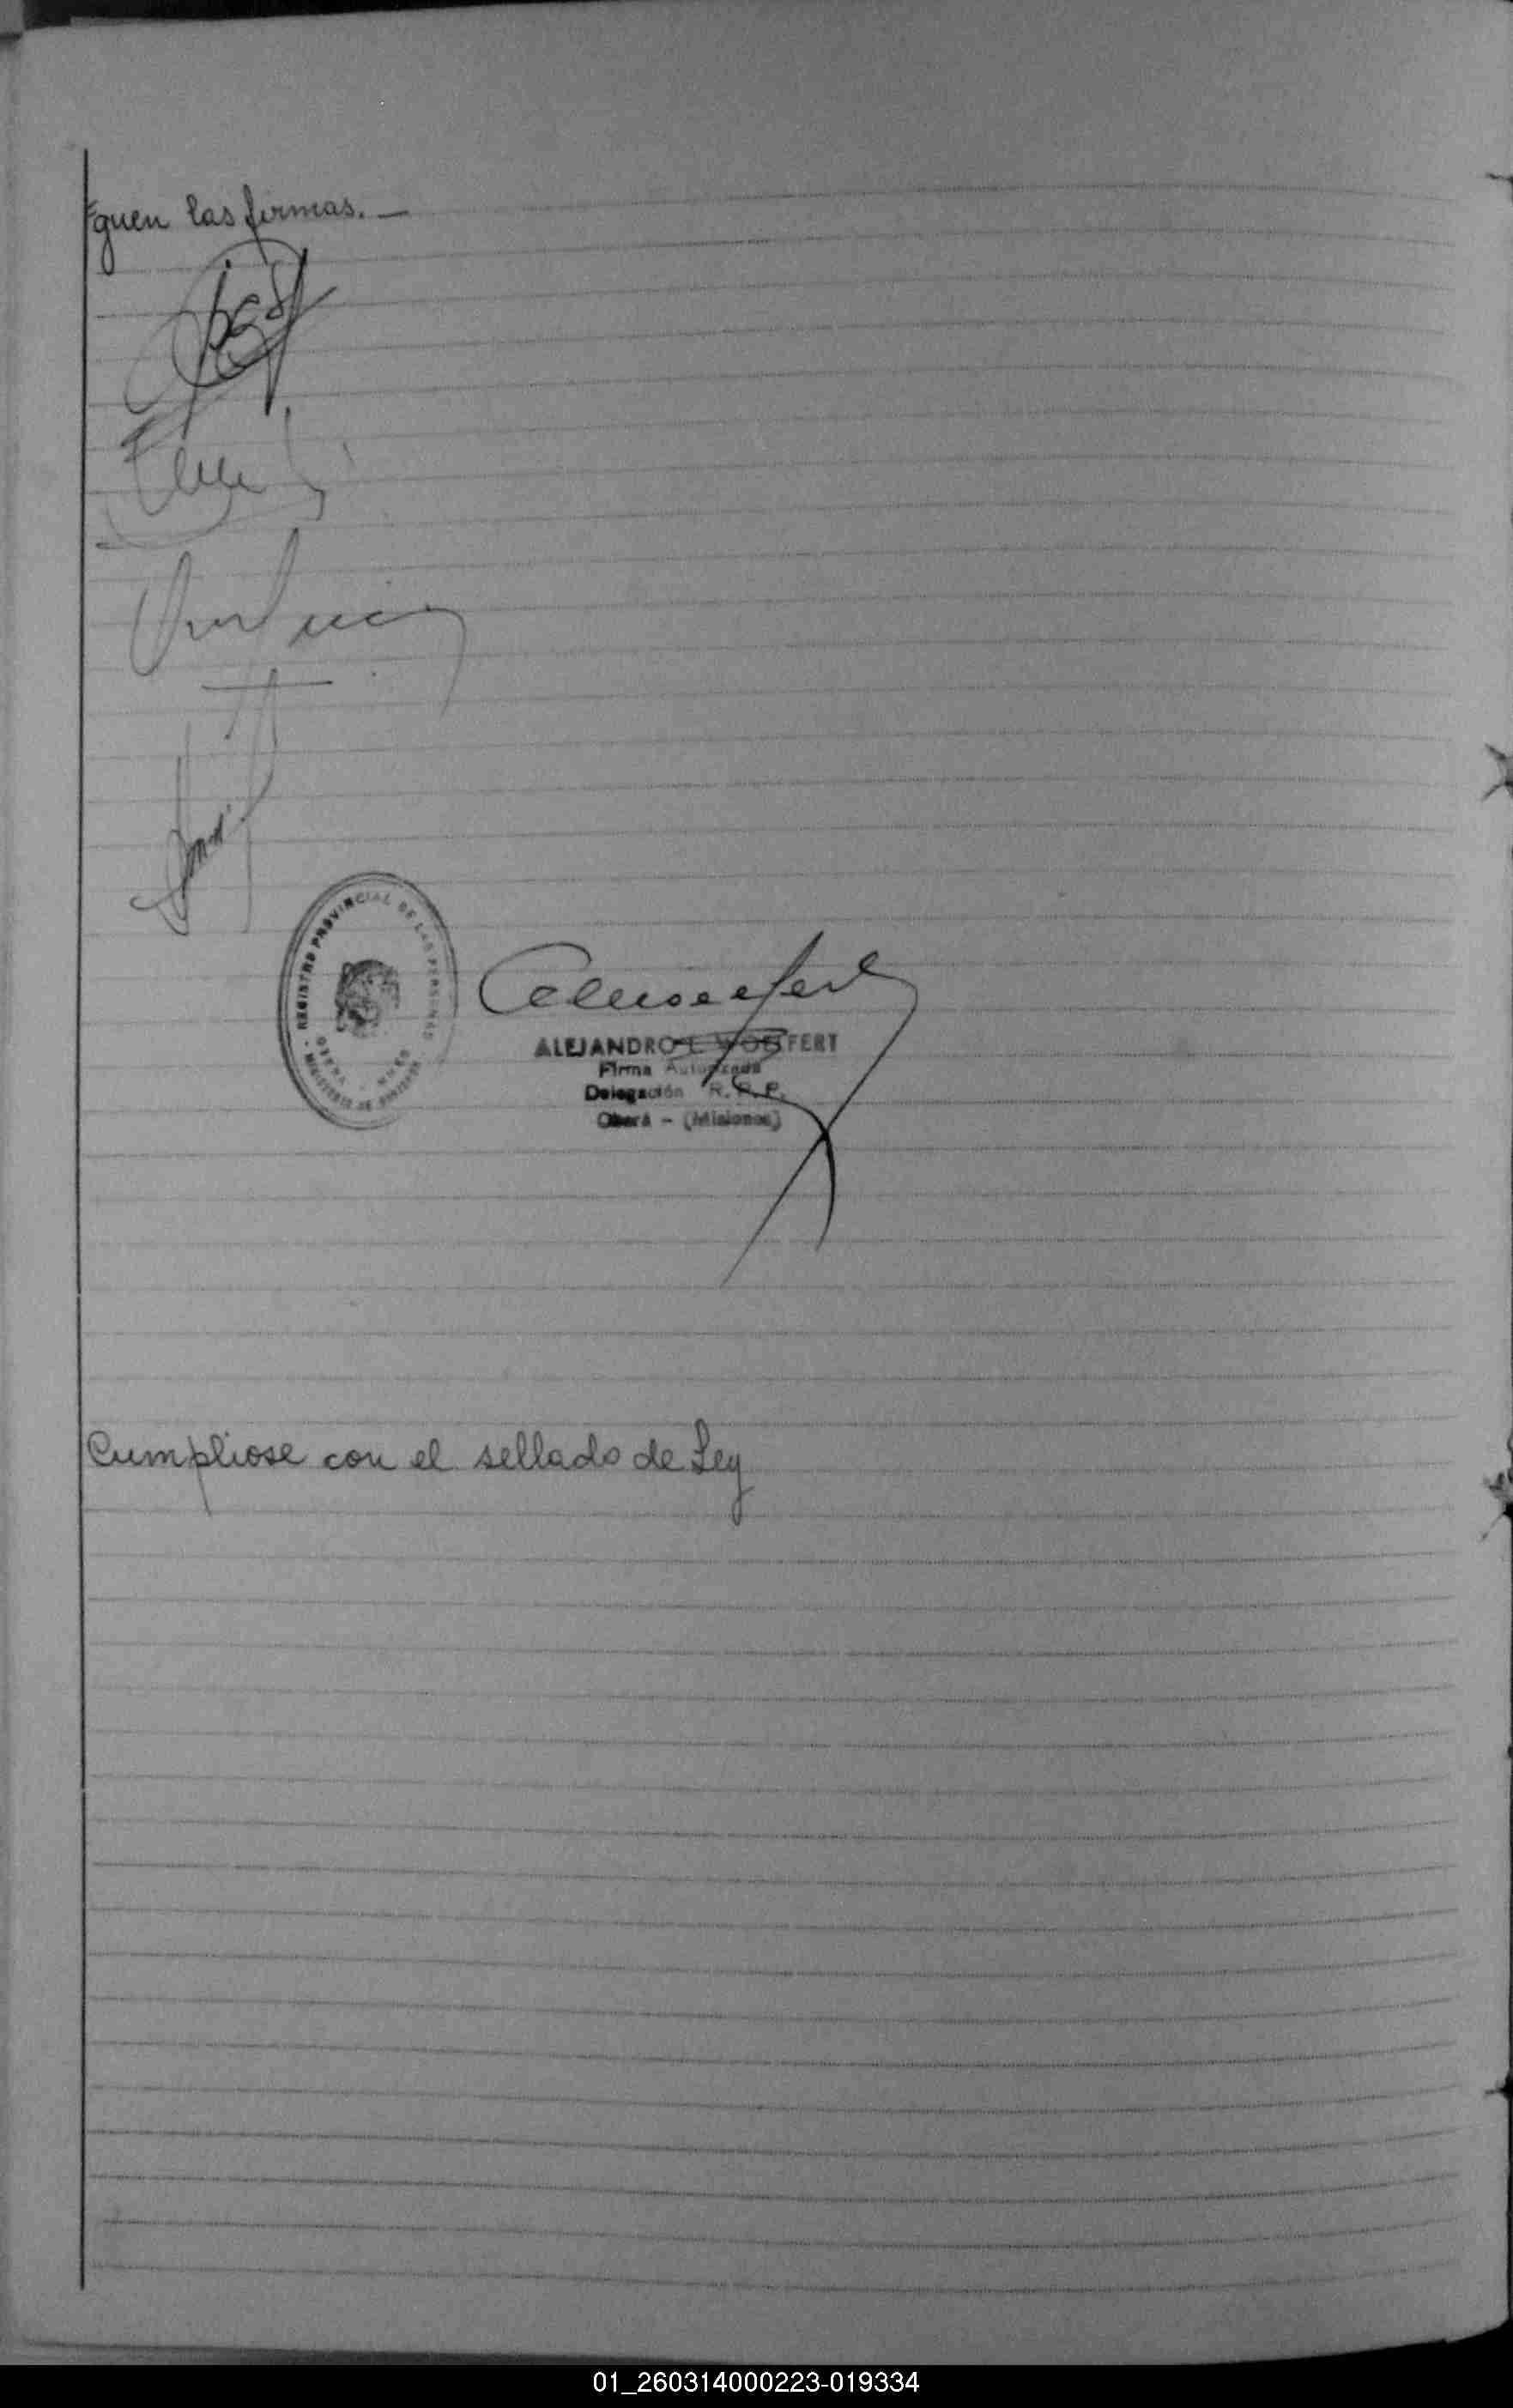 guen las firmas. —
REGISTRO PROVINCIAL DE LAS PERSONAS
OBERA - MNES
MINISTERIO DE
ALEJANDRO E. WOLFERT
Firma Autorizada
Delegación R. P. P.
Oberá - (Misiones)
Cumpliose con el sellado de Ley
01_260314000223-019334